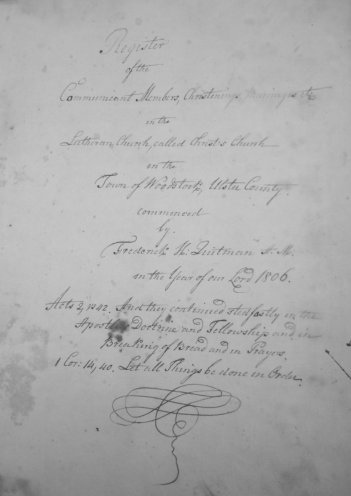 Register
of the
Communicant Members, Christenings, Marriages etc
in the
Lutheran Church, called Christ's Church
in the
Town of Woodstock, Ulster County
commenced
by.
Frederick H. Quitman A. M.
in the Year of our Lord 1806.
Acts 2, v. 42. And they continued stedfastly in the
Apostles Doctrine and Fellowship and in
Breaking of Bread and in Prayers.
1 Cor: 14, 40. Let all Things be done in Order.